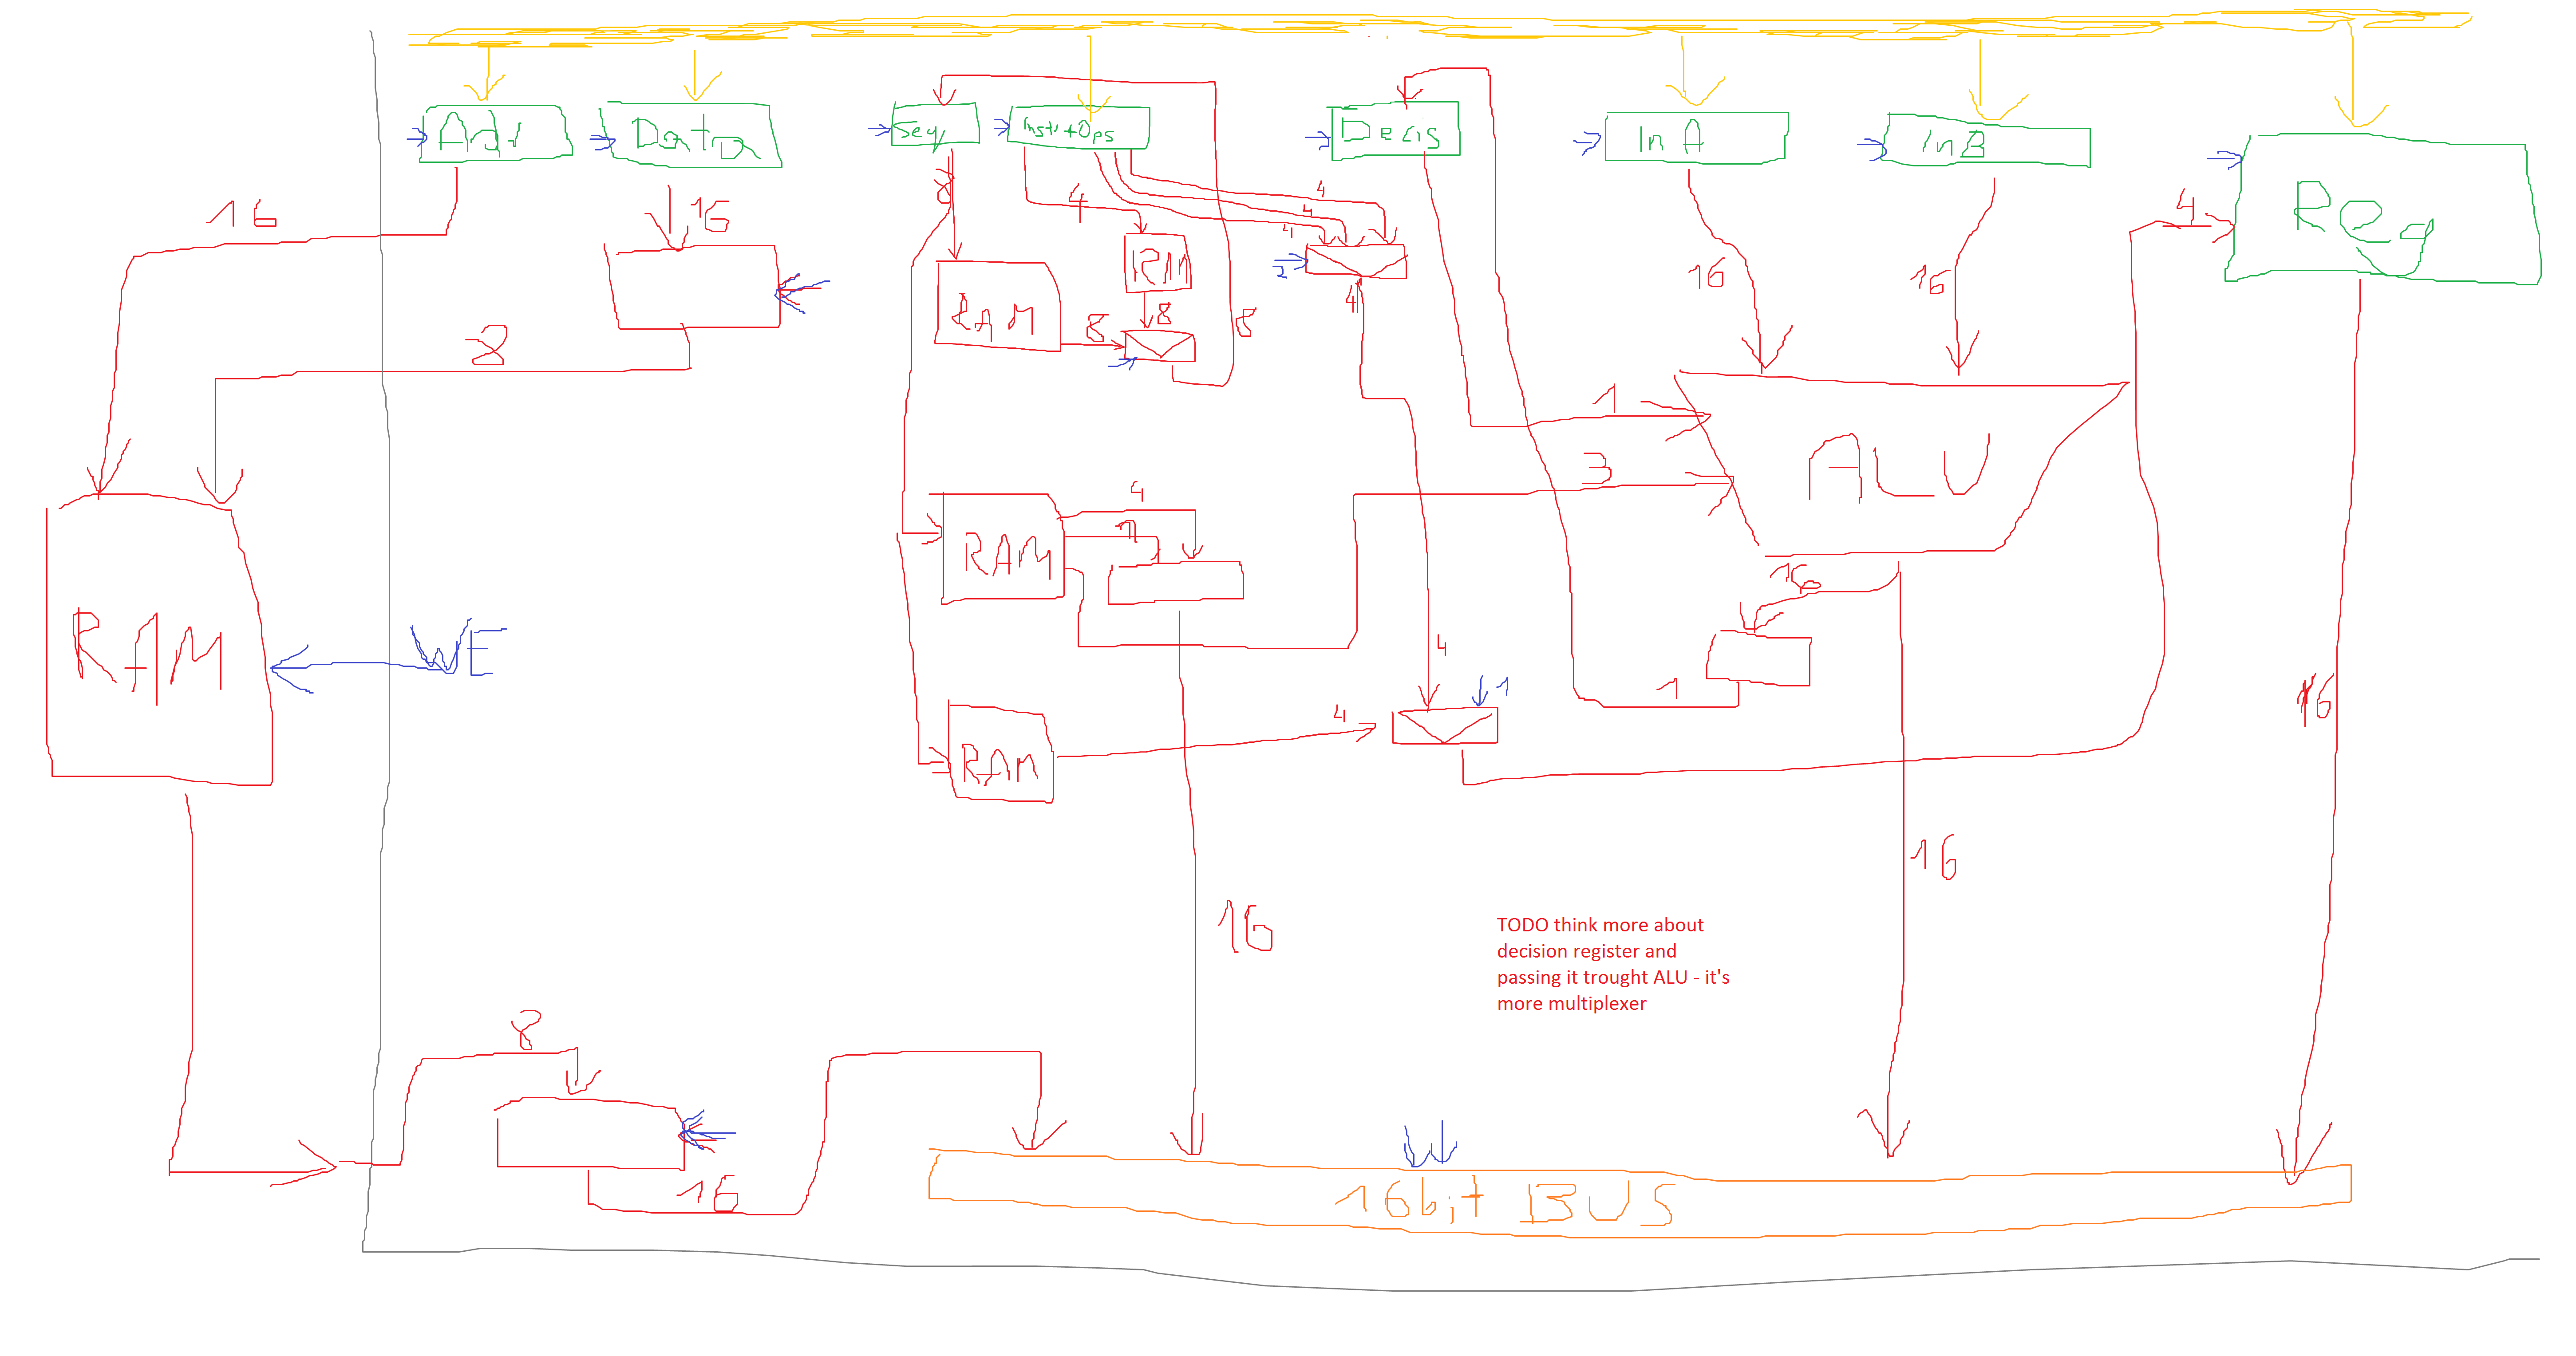 Adr
Data
Seq
Instr+Ops
Decis
In A
In B
Reg
16
16
8
4
4
4
4
4
2
4
16
16
RAM
RAM
8
8
8
8
1
3
ALU
4
1
RAM
16
RAM
WE
4
1
1
RAM
4
16
16
16
TODO think more about
decision register and
passing it trought ALU - it's
more multiplexer
8
16
16bit BUS